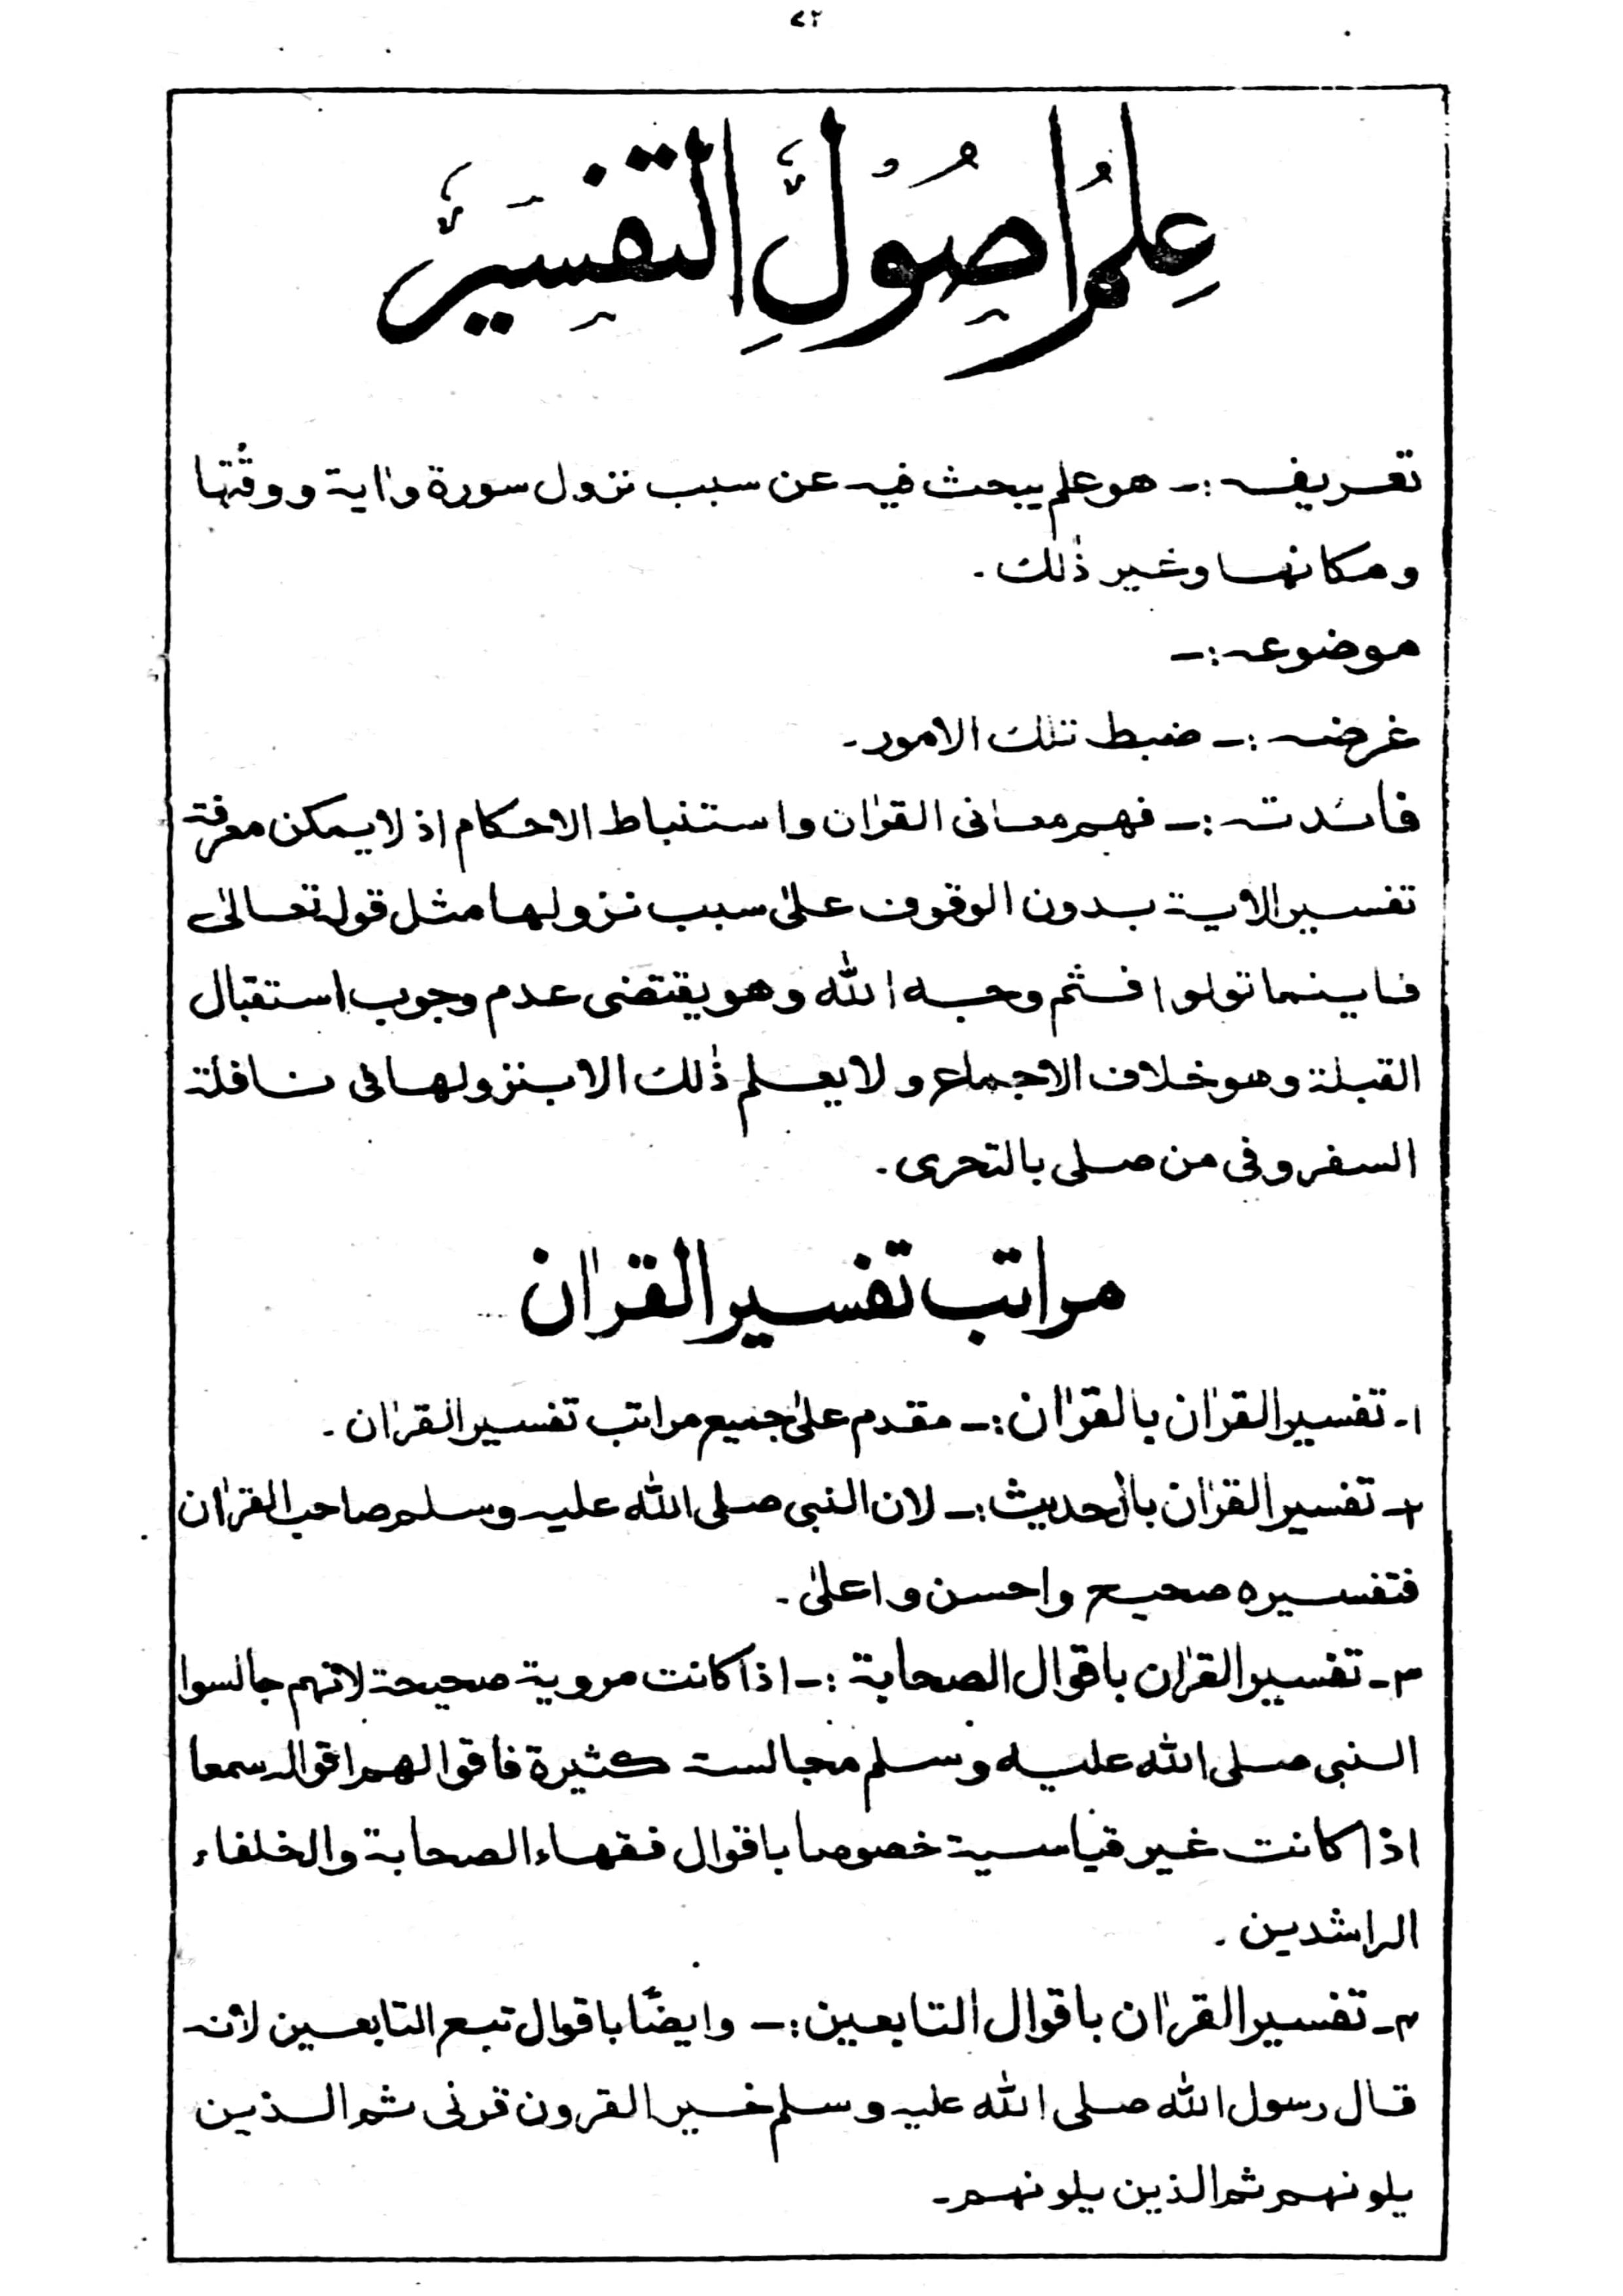 ٧٢
عِلمُ اُصُوْلِ التَّفسِیر
تعریفہ :۔ ھو علم یبحث فیہ عن سبب نزول سورة واٰیة ووقتھا
ومکانھا وغیر ذٰلک ۔
موضوعہ :۔
غرضہ :۔ ضبط تلک الامور۔
فائدتہ :۔ فھم معانی القراٰن واستنباط الاحکام اذ لا یمکن معرفة
تفسیر الایة بدون الوقوف علیٰ سبب نزولھا مثل قولہ تعالیٰ
فاینما تولوا فثم وجہ اللہ وھو یقتضی عدم وجوب استقبال
القبلة وھو خلاف الاجماع ولا یعلم ذٰلک الا بنزولھا فی نافلة
السفر وفی من صلی بالتحری ۔
مراتب تفسیر القراٰن
۱۔ تفسیر القراٰن بالقراٰن :۔ مقدم علیٰ جمیع مراتب تفسیر القراٰن ۔
۲۔ تفسیر القراٰن بالحدیث :۔ لان النبی صلی اللہ علیہ وسلم صاحب القراٰن
فتفسیرہ صحیح واحسن واعلیٰ ۔
۳۔ تفسیر القراٰن باقوال الصحابة :۔ اذا کانت مرویة صحیحة لانھم جالسوا
النبی صلی اللہ علیہ وسلم مجالست کثیرة فاقوالھم اقوالہ سمعا
اذا کانت غیر قیاسیة خصوصا باقوال فقھاء الصحابة والخلفاء
الراشدین ۔
۴۔ تفسیر القراٰن باقوال التابعین :۔ وایضًا باقوال تبع التابعین لانہ
قال رسول اللہ صلی اللہ علیہ وسلم خیر القرون قرنی ثم الذین
یلونھم ثم الذین یلونھم۔